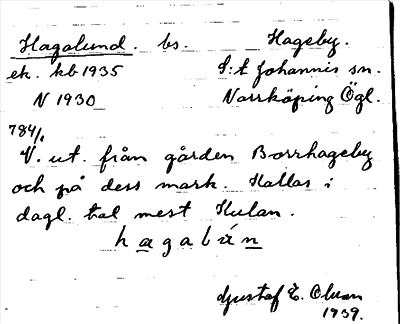 Hagalund. bs. Hageby.
ek. kb 1935 S:t Johannis sn.
N 1930 Norrköping Ögl.
784/1
V. ut. från gården Borrhageby
och på dess mark. Kallas i
dagl. tal mest Kulan.
hagalún
Gustaf E. Olson
1939.